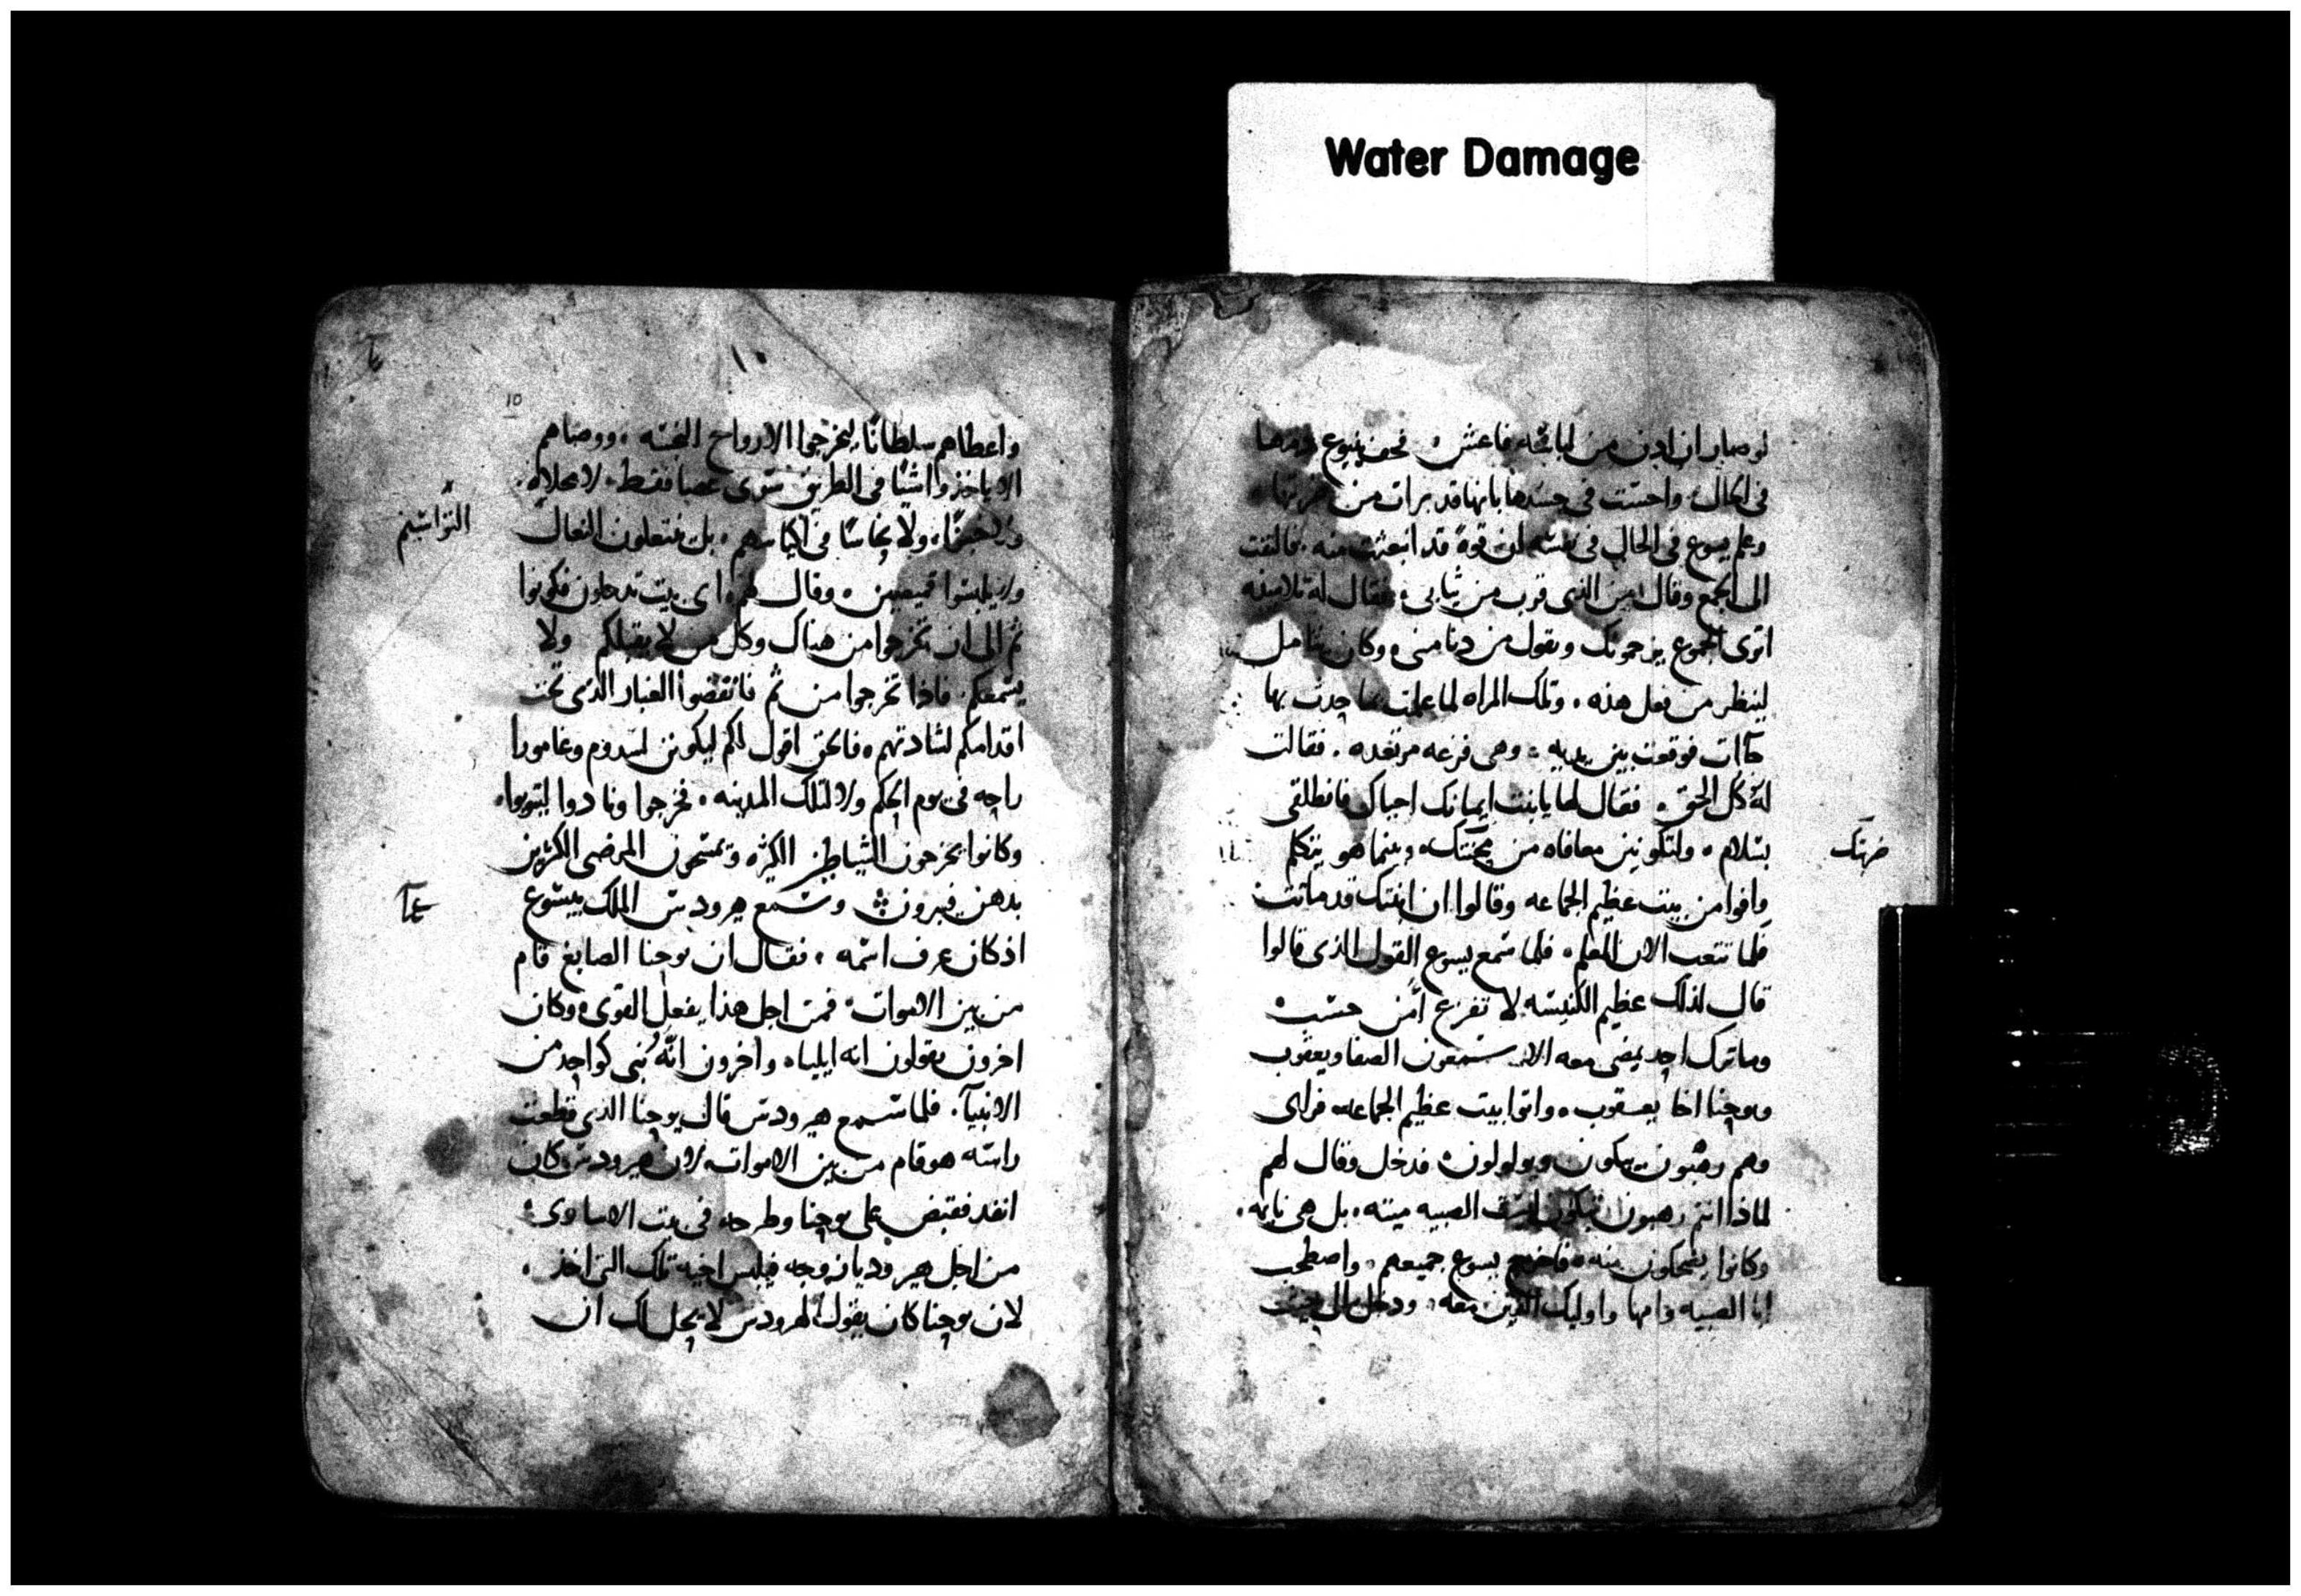 Water Damage
لو صار ان ادن من لباسه فاعتق فجف ينبوع دمها
فى الحال واحست فى جسدها بانها قد برات من ضربتها
وعلم يسوع فى الحال فى نفسه ان قوة قد انبعثت منه فالتفت
الى الجمع وقال من الذى قرب من ثيابى فقال له تلاميذه
اترى الجموع يزحمونك وتقول من دنا منى وكان يتامل
لينظر من فعل هذه وتلك المراه لما علمت بما حدث بها
جاات فوقعت بين يديه وهى فزعه مرتعده فقالت
له كل الحق فقال لها يا بنت ايمانك احياك فانطلقى
بسلام ولتكونين معافاه من محنتك وبينما هو يتكلم
ضربتك
وافوا من بيت عظيم الجماعه وقالوا ان ابنتك قد ماتت
فلما تتعب الان المعلم فلما سمع يسوع القول الذى قالوا
قال لذلك عظيم الكنيسه لا تفزع آمن حسب
وما ترك احد يمضى معه الا سمعون الصفا ويعقوب
ويوحنا اخا يعقوب واتوا بيت عظيم الجماعه فراى
وهم رهبون يبكون ويولولون فدخل وقال لهم
لماذا انتم رهبون تبكون ليست الصبيه ميته بل هى نايمه
وكانوا يضحكون منه فاخرج يسوع جميعهم واصطحب
ابا الصبيه وامها واوليك الذين معه ودخل الى حيث
١٠
10
واعطاهم سلطانًا ليخرجوا الارواح النجسه ووصاهم
الا ياخذوا شيًا فى الطريق سوى عصا فقط لا مخلاه
ولا خبزًا ولا نحاسًا فى اكياسهم بل ينتعلون النعال
ولا يلبسوا قميصين وقال لهم اى بيت تدخلون فكونوا
ثم الى ان تخرجوا من هناك وكل من لا يقبلكم ولا
يسمعكم فاذا تخرجوا من ثم فانفضوا الغبار الذى تحت
اقدامكم لشهادتهم فالحق اقول لكم ليكونن لسدوم وغامورا
راحه فى يوم الحكم ولا لتلك المدينه فخرجوا ونادوا ليتوبوا
وكانوا يخرجون الشياطين الكثيره ويمسحون المرضى الكثيرين
بدهن فيبرون وسمع هيرودس الملك بيسوع
اذ كان عرف اسمه فقال ان يوحنا الصابغ قام
من بين الاموات فمن اجل هذا يفعل القوى وكان
اخرون يقولون انه ايليا واخرون انّه نبى كواحد من
الانبيآ فلما سمع هيرودس قال يوحنا الذى قطعت
راسه هو قام من بين الاموات لان هيرودس كان
انفذ فقبض على يوحنا وطرحه فى بيت الاسارى
من اجل هيروديا زوجه فيلبس اخيه تلك التى اخذ
لان يوحنا كان يقول لهرودس لا يحل لك ان